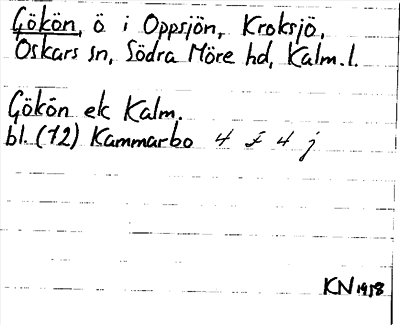 Gökön, ö i Oppsjön, Kroksjö,
Oskars sn, Södra Möre hd, Kalm. l.
Gökön ek Kalm.
bl. (12) Kammarbo 4 I 4 j
KN 1958